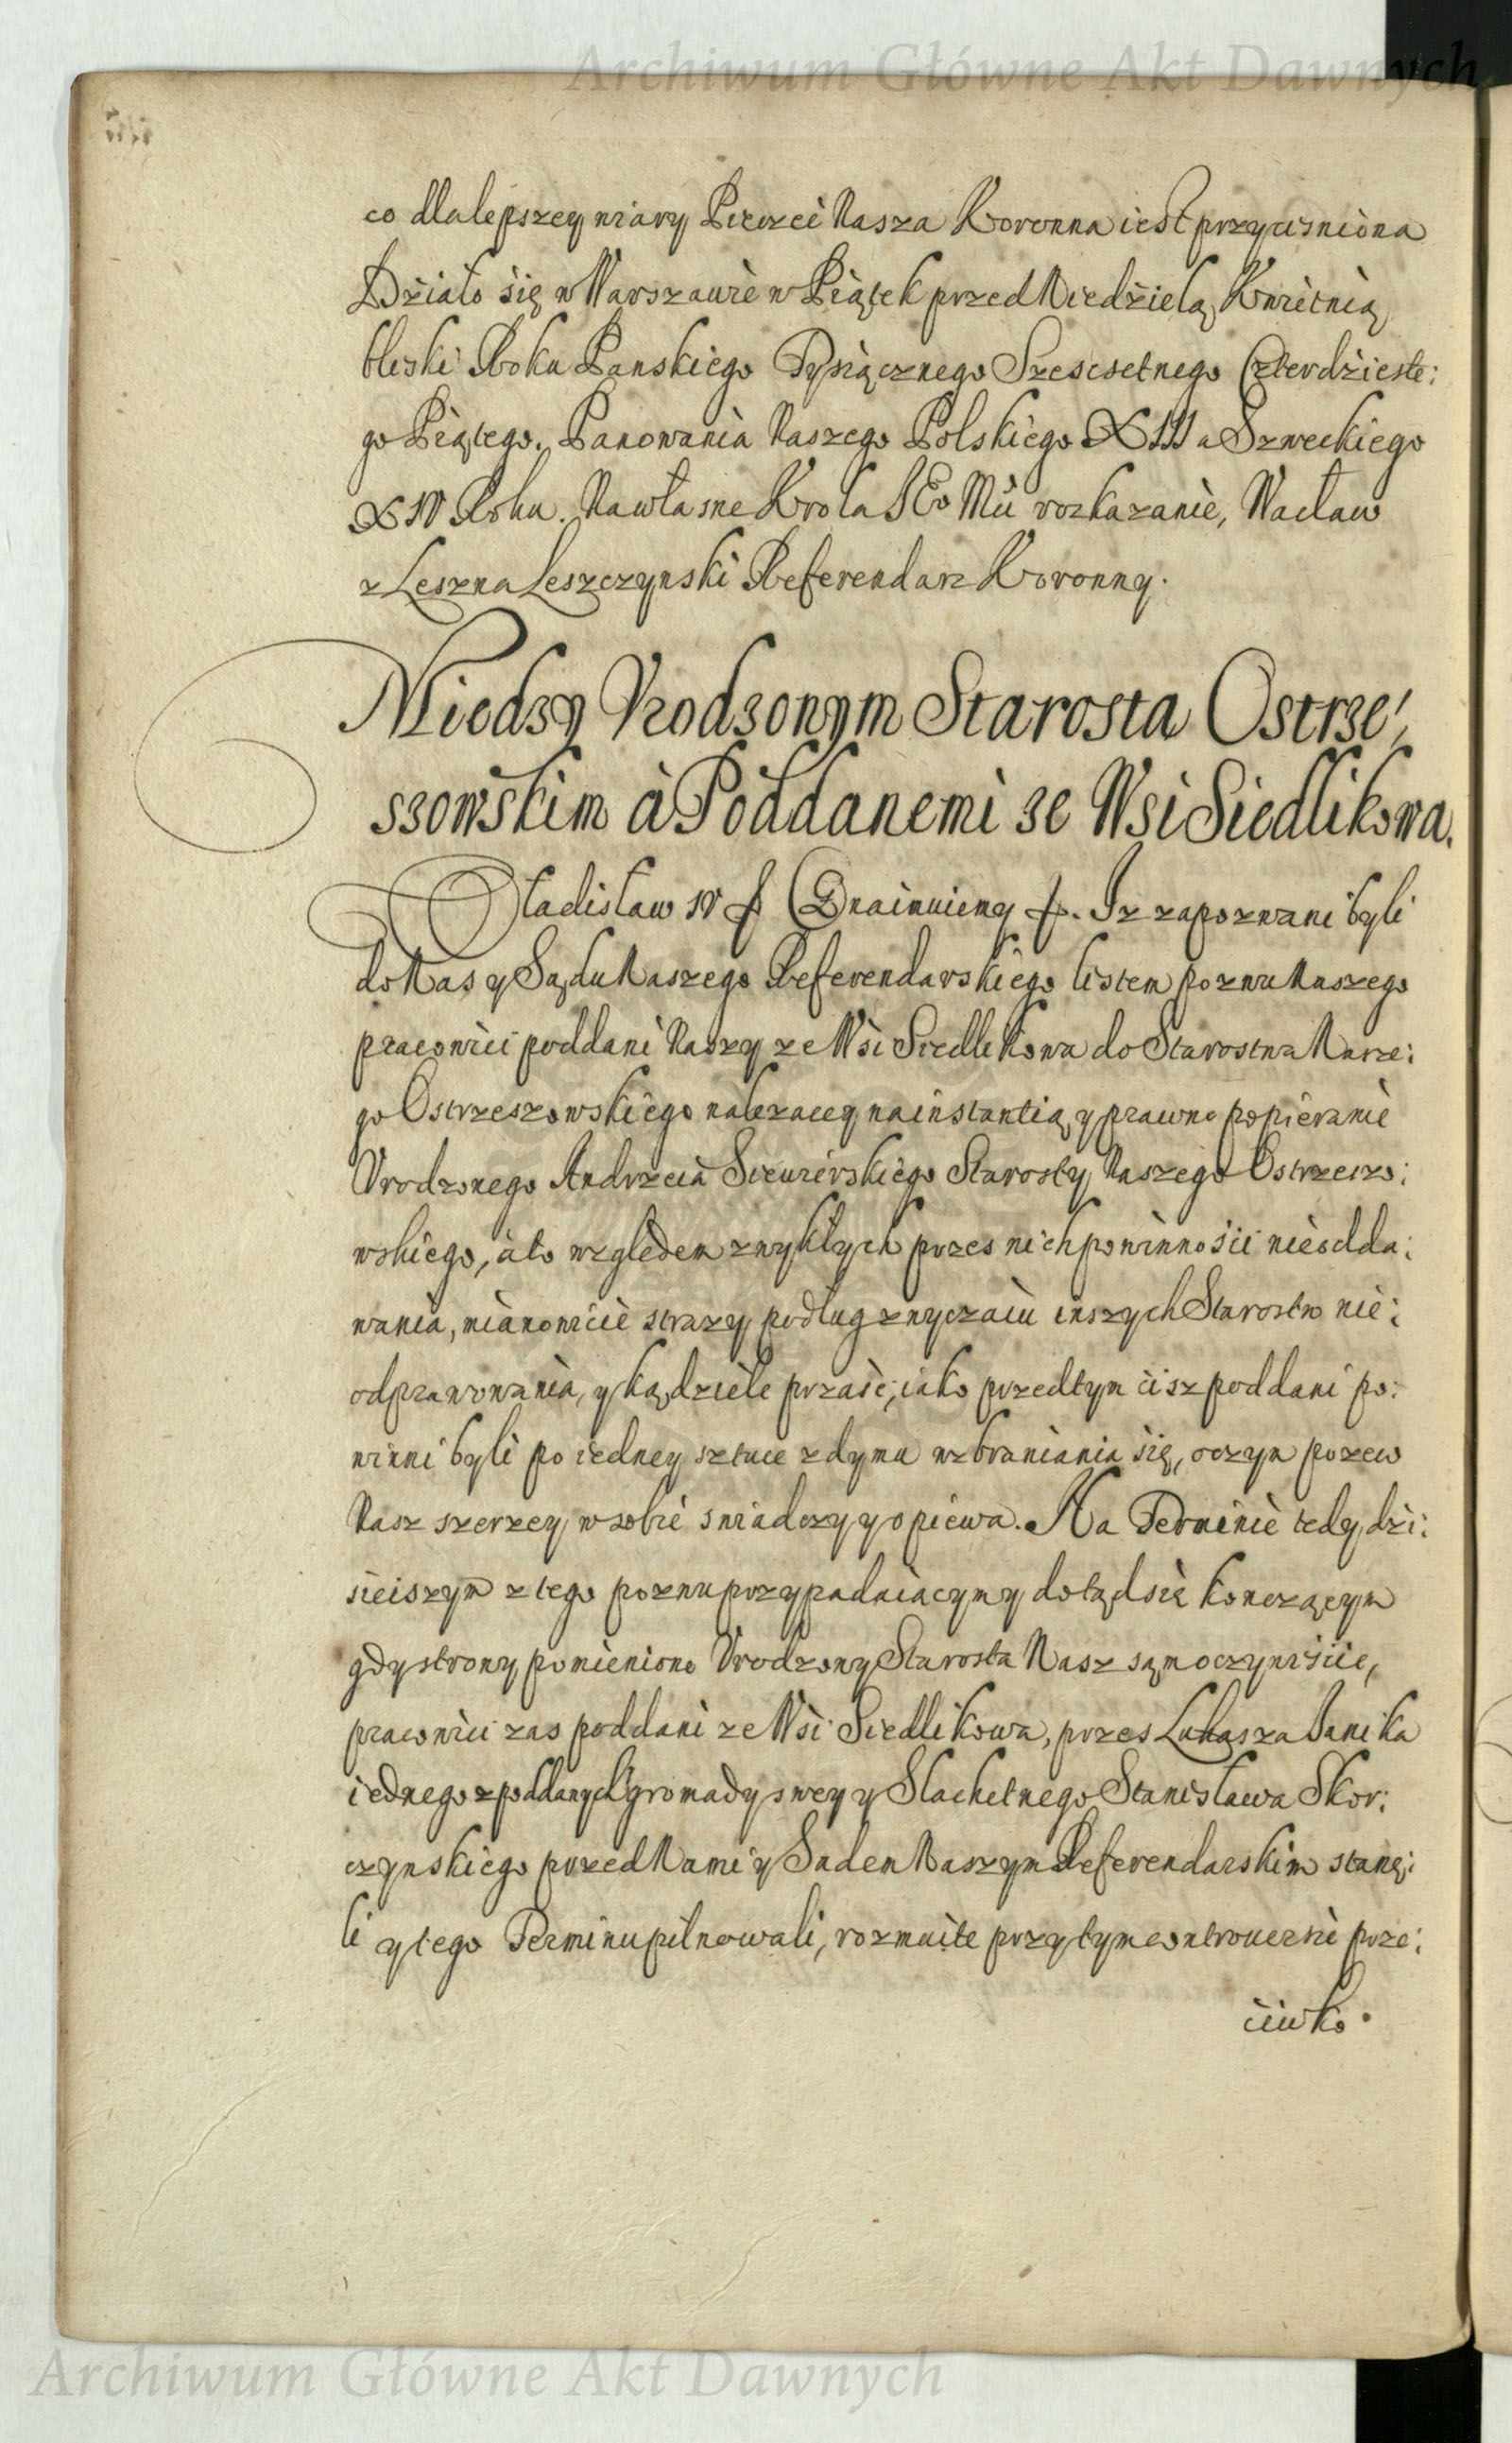 Archiwum Główne Akt Dawnych
co dla lepszey wiary Pieczęć Nasza Koronna iest przycisniona
Działo się w Warszawie w Piątek przed Niedzielą Kwietnią
bliski Roku Panskiego Tysiącznego Szescsetnego Czterdzieste:
go Piątego. Panowania Naszego Polskiego XIII a Szweckiego
XIV Roku. Na własne Krola JEo Mći rozkazanie, Wacław
z Leszna Leszczynski Referendarz Koronny.
Miedzy Vrodzonym Starosta Ostrze,
szowskim à Poddanemi ze Wsi Siedlikowa.
Vladislaw IV f Oznaimuiemy f. Iz zapozwani byli
do Nas y Sądu Naszego Referendarskiego listem pozwu Naszego
pracowici poddani Naszy ze Wsi Siedlikowa do Starostwa Nasze:
go Ostrzeszowskiego nalezacey na instantią y prawne popieranie
Vrodzonego Andrzeia Siewierskiego Starosty Naszego Ostrzeszo:
wskiego, a to względem zwykłych przes nich powinnosci nieodda:
wania, mianowicie strazy podług zwyczaiu inszych Starostw nie:
odprawowania, y kądziele prząsc, iako przedtym cisz poddani po:
winni byli po iedney sztuce z dymu wzbraniania się, o czym pozew
Nasz szerzey w sobie swiadczy y opiewa. Na Terminie tedy dzi:
sieiszym z tego pozwu przypadaiacym y dotąd się konczącym
gdy strony pomienione Vrodzony Starosta Nasz sąm oczywiscie,
pracowici zas poddani ze Wsi Siedlikowa, przes Łukasza Janika
iednego z poddanych gromady swey y Slachetnego Stanisława Skor:
czynskiego przed Nami y Sadem Naszym Referendarskim staneͅ:
li y tego Terminu pilnowali, rozmaite przy tym controuersie prze:
ciwko.
Archiwum Główne Akt Dawnych